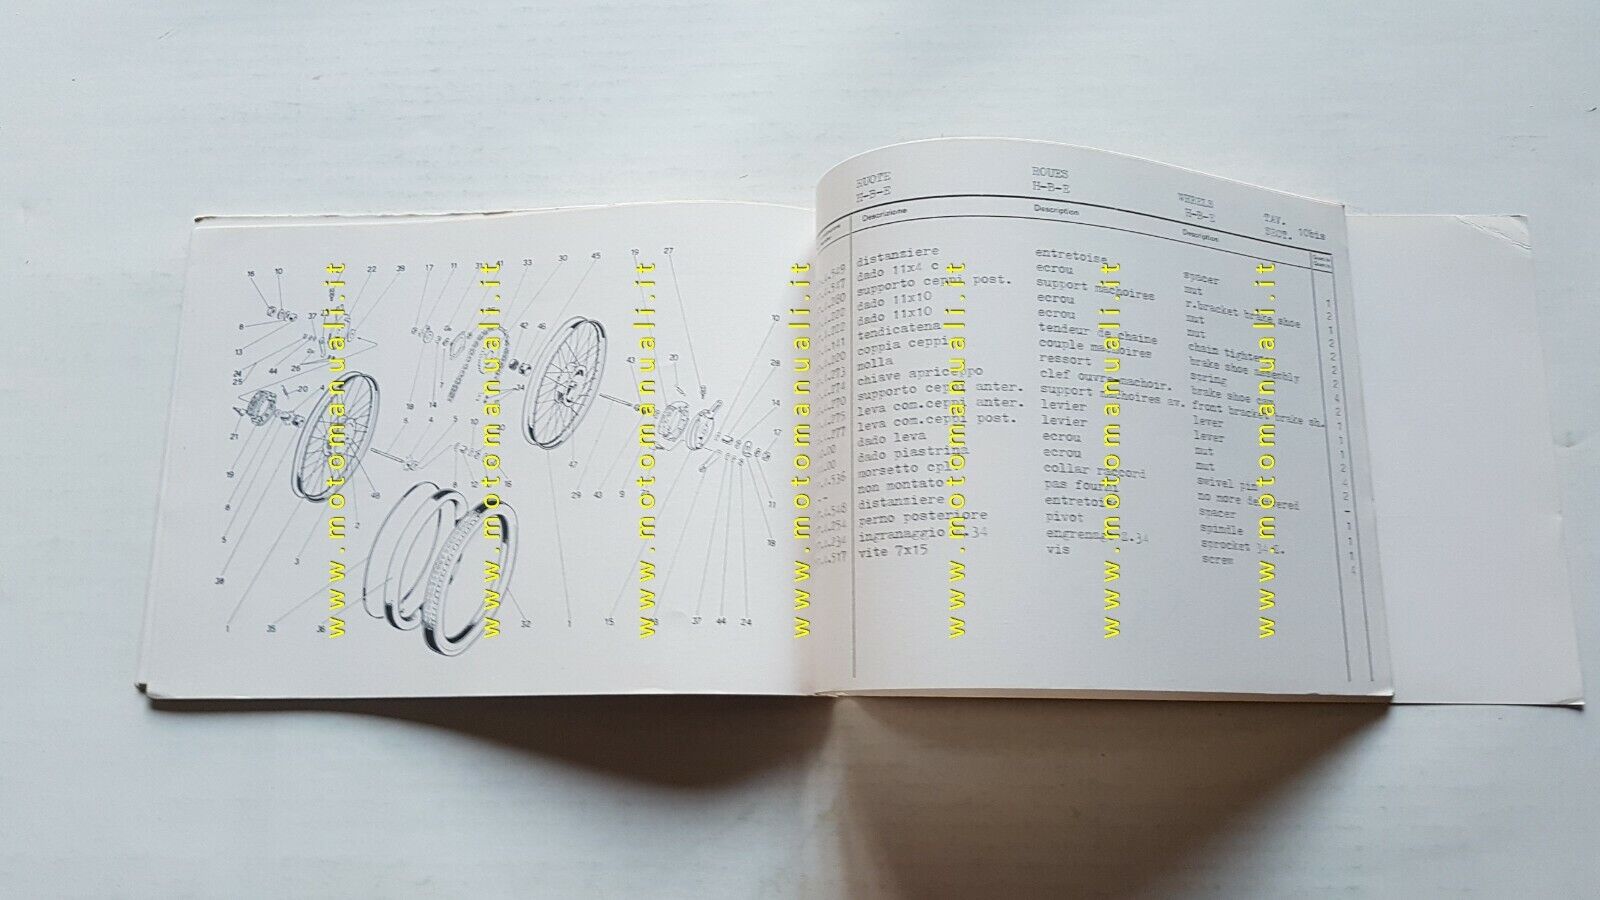 RUOTE ROUES WHEELS TAV.
H-B-E H-B-E H-B-E SECT. 10bis
Descrizione Description Description
distanziere entretoise spacer 1
dado 11x4 c ecrou nut 2
supporto ceppi post. support machoires r.bracket brake shoe 1
dado 11x10 ecrou nut 2
dado 11x10 ecrou nut 2
tendicatena tendeur de chaine chain tighter 2
coppia ceppi couple machoires brake shoe assembly 2
molla ressort spring 4
chiave apriceppo clef ouvre machoir. brake shoe cam 2
supporto ceppi anter. support machoires av. front bracket brake sh. 1
leva com.ceppi anter. levier lever 1
leva com.ceppi post. levier lever 1
dado leva ecrou nut 2
dado piastrina ecrou nut 4
morsetto cpl. collar raccord swivel pin 2
non montato pas fourni no more delivered -
distanziere entretoise spacer 1
perno posteriore pivot spindle 1
ingranaggio z.34 engrenage z.34 sprocket 1
vite 7x15 vis screw 4
16 10 22 39 17 11 31 41 33 30 45 19 27
8 37 13 24 25 44 26 20 21 19 8 5 38 3 1 35 36
42 46 43 20 10 28 14 17 11 18
7 18 14 34 5 4 10 12 16 48 2
47 29 43 9 32 1 15 37 44 6 24
www.motomanuali.it
www.motomanuali.it
www.motomanuali.it
www.motomanuali.it
www.motomanuali.it
www.motomanuali.it
www.motomanuali.it